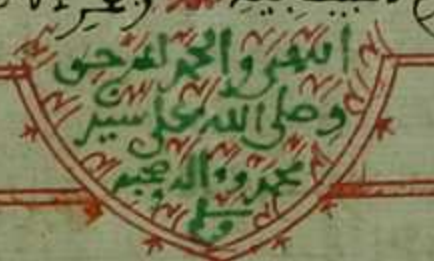 انتهى والحمد لله حق
وصلى الله على سيدنا
محمد وءاله وصحبه
وسلم